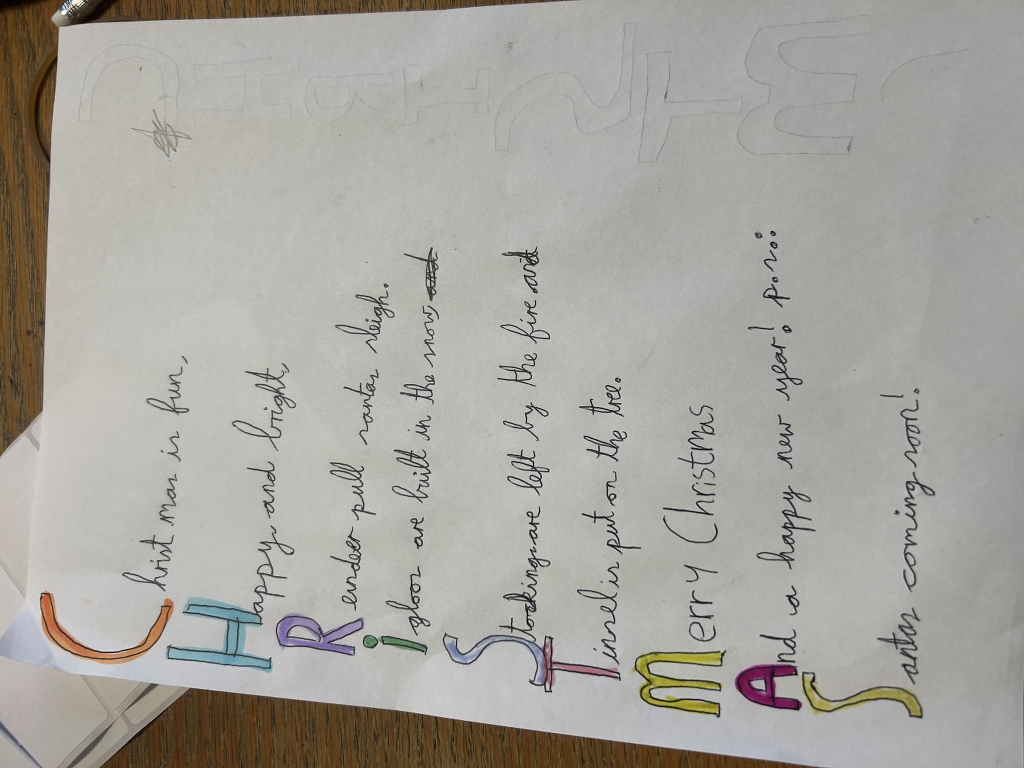 Christmas is fun,
Happy and bright,
Reindeer pull santas sleigh.
igloos are built in the snow and
Stockings are left by the fire and
Tinsel is put on the tree.
Merry Christmas
And a happy new year! p.s.:
Santas coming soon!
CHRISTM